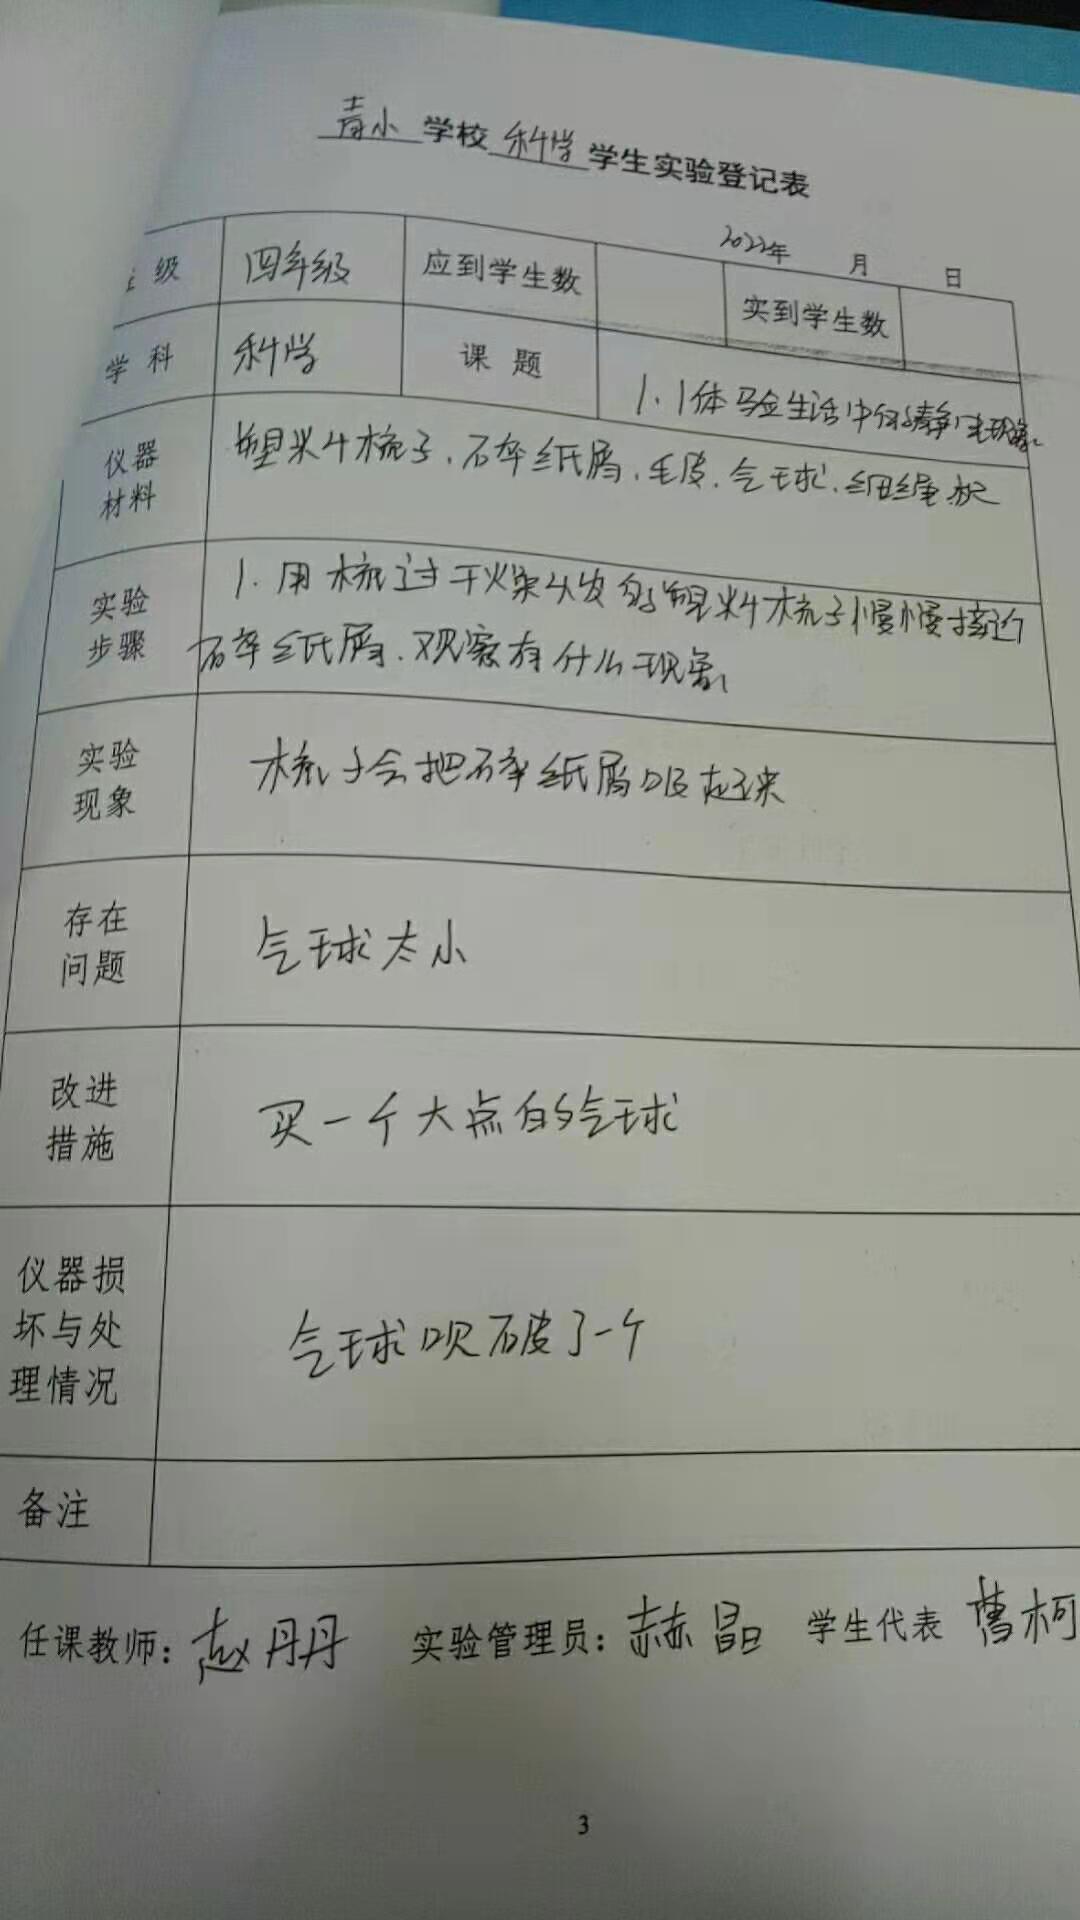 青小学校科学学生实验登记表
2022年 月 日
级 四年级 应到学生数 实到学生数
学科 科学 课题 1.1体验生活中的静电现象
仪器材料 塑料梳子、碎纸屑、毛皮、气球、细绳
实验步骤 1.用梳过干燥头发的塑料梳子慢慢接近
碎纸屑、观察有什么现象
实验现象 梳子会把碎纸屑吸起来
存在问题 气球太小
改进措施 买一个大点的气球
仪器损坏与处理情况 气球吹破了一个
备注
任课教师：赵丹丹 实验管理员：赫晶 学生代表 曹柯
3